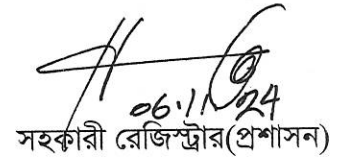 06.11.24
সহকারী রেজিস্ট্রার(প্রশাসন)